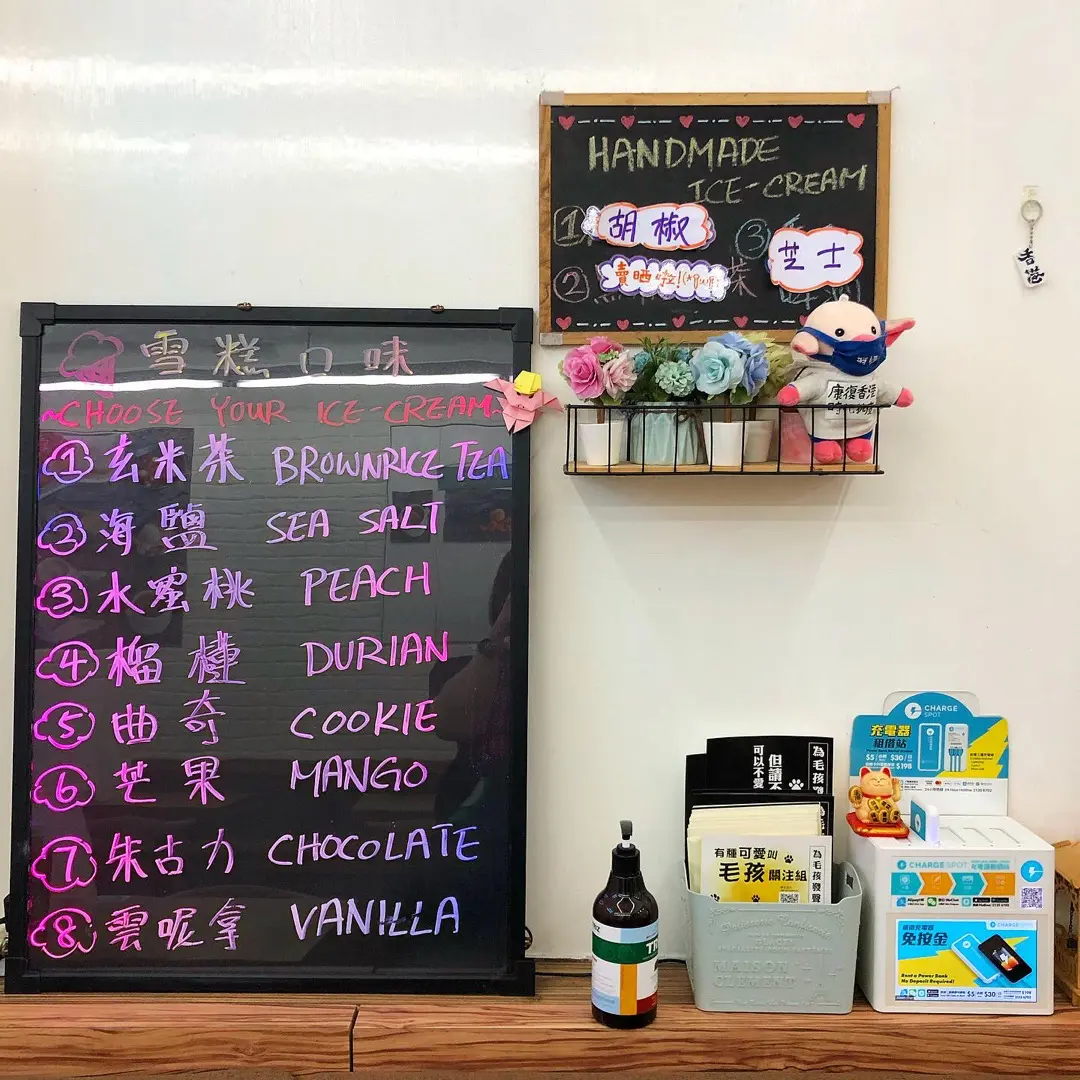 雪糕口味
~CHOOSE YOUR ICE-CREAM~
① 玄米茶 BROWNRICE TEA
② 海鹽 SEA SALT
③ 水蜜桃 PEACH
④ 榴槤 DURIAN
⑤ 曲奇 COOKIE
⑥ 芒果 MANGO
⑦ 朱古力 CHOCOLATE
⑧ 雲呢拿 VANILLA
HANDMADE
ICE-CREAM
① 胡椒
③ 芝士
② 賣晒啦!
茶
康復香港
香港
為毛孩
但請不
可以不愛
有種可愛叫
毛孩關注組
為毛孩發聲
CHARGE
SPOT
充電器
租借站
$5 $30/日
$198
CHARGESPOT
免按金
Rent a Power Bank
No Deposit Required!
$5 $30